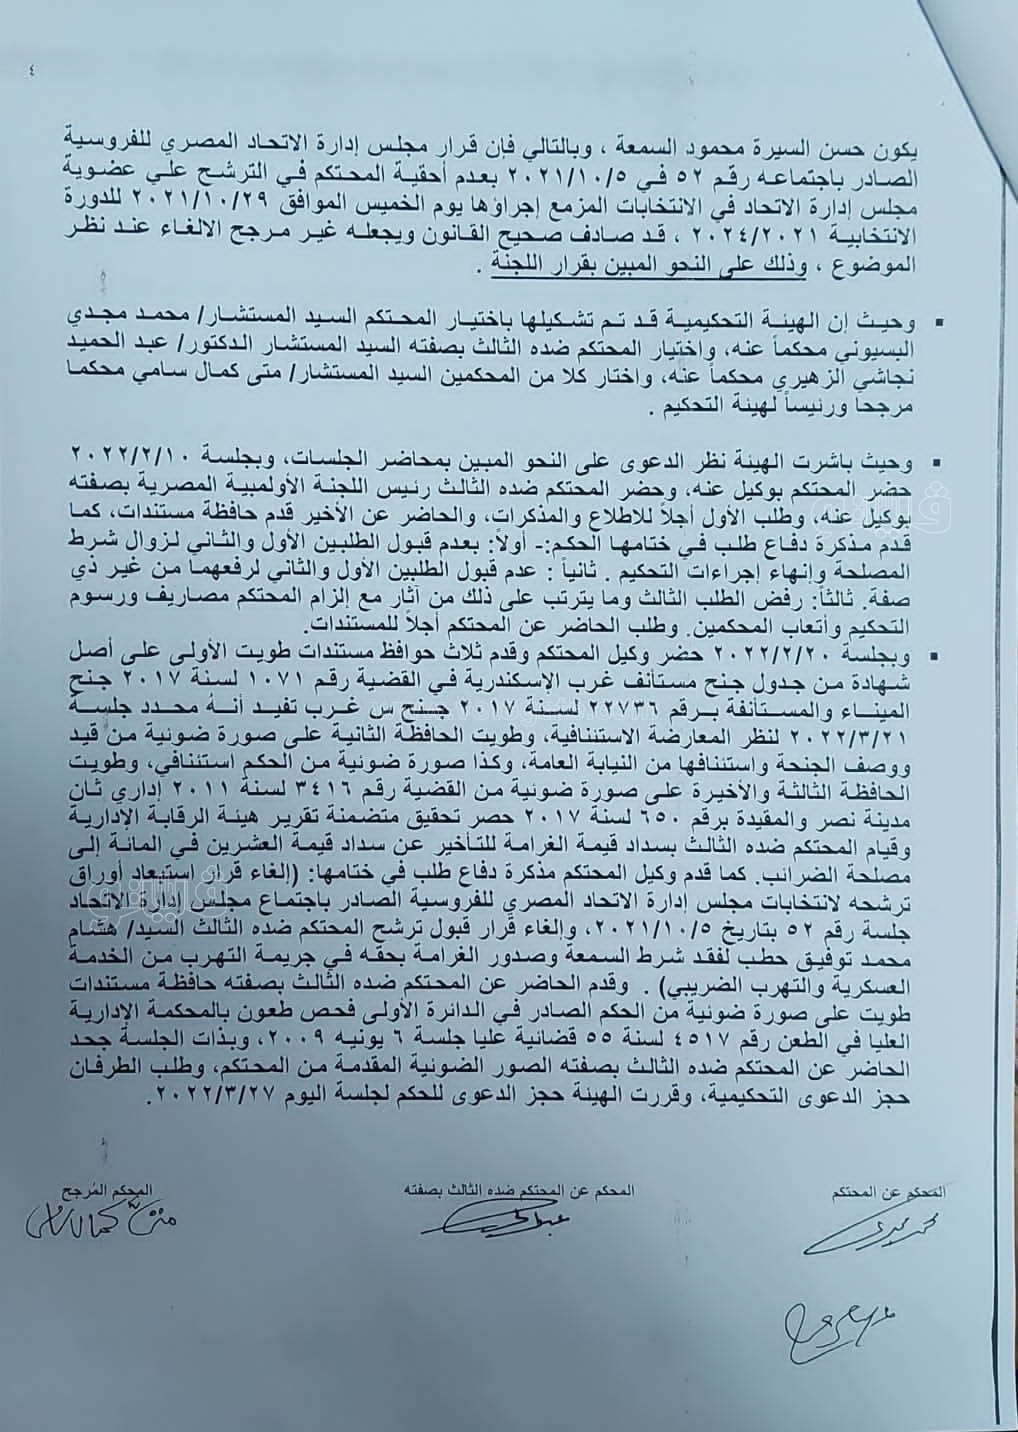 ٤
يكون حسن السيرة محمود السمعة ، وبالتالي فإن قرار مجلس إدارة الاتحاد المصري للفروسية
الصادر باجتماعه رقم ٥٢ في ٢٠٢١/١٠/٥ بعدم أحقية المحتكم في الترشح علي عضوية
مجلس إدارة الاتحاد في الانتخابات المزمع إجراؤها يوم الخميس الموافق ٢٠٢١/١٠/٢٩ للدورة
الانتخابية ٢٠٢٤/٢٠٢١ ، قد صادف صحيح القانون ويجعله غير مرجح الالغاء عند نظر
الموضوع ، وذلك على النحو المبين بقرار اللجنة .
▪ وحيث إن الهيئة التحكيمية قد تم تشكيلها باختيار المحتكم السيد المستشار/ محمد مجدي
البسيوني محكماً عنه، واختيار المحتكم ضده الثالث بصفته السيد المستشار الدكتور/ عبد الحميد
نجاشي الزهيري محكماً عنه، واختار كلا من المحكمين السيد المستشار/ متى كمال سامي محكما
مرجحا ورئيساً لهيئة التحكيم .
▪ وحيث باشرت الهيئة نظر الدعوى على النحو المبين بمحاضر الجلسات، وبجلسة ٢٠٢٢/٢/١٠
حضر المحتكم بوكيل عنه، وحضر المحتكم ضده الثالث رئيس اللجنة الأولمبية المصرية بصفته
بوكيل عنه، وطلب الأول أجلاً للاطلاع والمذكرات، والحاضر عن الأخير قدم حافظة مستندات، كما
قدم مذكرة دفاع طلب في ختامها الحكم:- أولاً: بعدم قبول الطلبين الأول والثاني لزوال شرط
المصلحة وإنهاء إجراءات التحكيم . ثانياً : عدم قبول الطلبين الأول والثاني لرفعهما من غير ذي
صفة. ثالثاً: رفض الطلب الثالث وما يترتب على ذلك من آثار مع إلزام المحتكم مصاريف ورسوم
التحكيم وأتعاب المحكمين. وطلب الحاضر عن المحتكم أجلاً للمستندات.
▪ وبجلسة ٢٠٢٢/٢/٢٠ حضر وكيل المحتكم وقدم ثلاث حوافظ مستندات طويت الأولى على أصل
شهادة من جدول جنح مستأنف غرب الإسكندرية في القضية رقم ١٠٧١ لسنة ٢٠١٧ جنح
الميناء والمستأنفة برقم ٢٢٧٣٦ لسنة ٢٠١٧ جنح س غرب تفيد أنه محدد جلسة
٢٠٢٢/٣/٢١ لنظر المعارضة الاستئنافية، وطويت الحافظة الثانية على صورة ضوئية من قيد
ووصف الجنحة واستئنافها من النيابة العامة، وكذا صورة ضوئية من الحكم استئنافي، وطويت
الحافظة الثالثة والأخيرة على صورة ضوئية من القضية رقم ٣٤١٦ لسنة ٢٠١١ إداري ثان
مدينة نصر والمقيدة برقم ٦٥٠ لسنة ٢٠١٧ حصر تحقيق متضمنة تقرير هيئة الرقابة الإدارية
وقيام المحتكم ضده الثالث بسداد قيمة الغرامة للتأخير عن سداد قيمة العشرين في المائة إلى
مصلحة الضرائب. كما قدم وكيل المحتكم مذكرة دفاع طلب في ختامها: (إلغاء قرار استبعاد أوراق
ترشحه لانتخابات مجلس إدارة الاتحاد المصري للفروسية الصادر باجتماع مجلس إدارة الاتحاد
جلسة رقم ٥٢ بتاريخ ٢٠٢١/١٠/٥، وإلغاء قرار قبول ترشح المحتكم ضده الثالث السيد/ هشام
محمد توفيق حطب لفقد شرط السمعة وصدور الغرامة بحقه في جريمة التهرب من الخدمة
العسكرية والتهرب الضريبي) . وقدم الحاضر عن المحتكم ضده الثالث بصفته حافظة مستندات
طويت على صورة ضوئية من الحكم الصادر في الدائرة الأولى فحص طعون بالمحكمة الإدارية
العليا في الطعن رقم ٤٥١٧ لسنة ٥٥ قضائية عليا جلسة ٦ يونيه ٢٠٠٩، وبذات الجلسة جحد
الحاضر عن المحتكم ضده الثالث بصفته الصور الضوئية المقدمة من المحتكم، وطلب الطرفان
حجز الدعوى التحكيمية، وقررت الهيئة حجز الدعوى للحكم لجلسة اليوم ٢٠٢٢/٣/٢٧.
المحكم عن المحتكم
المحكم عن المحتكم ضده الثالث بصفته
المحكم المُرجح